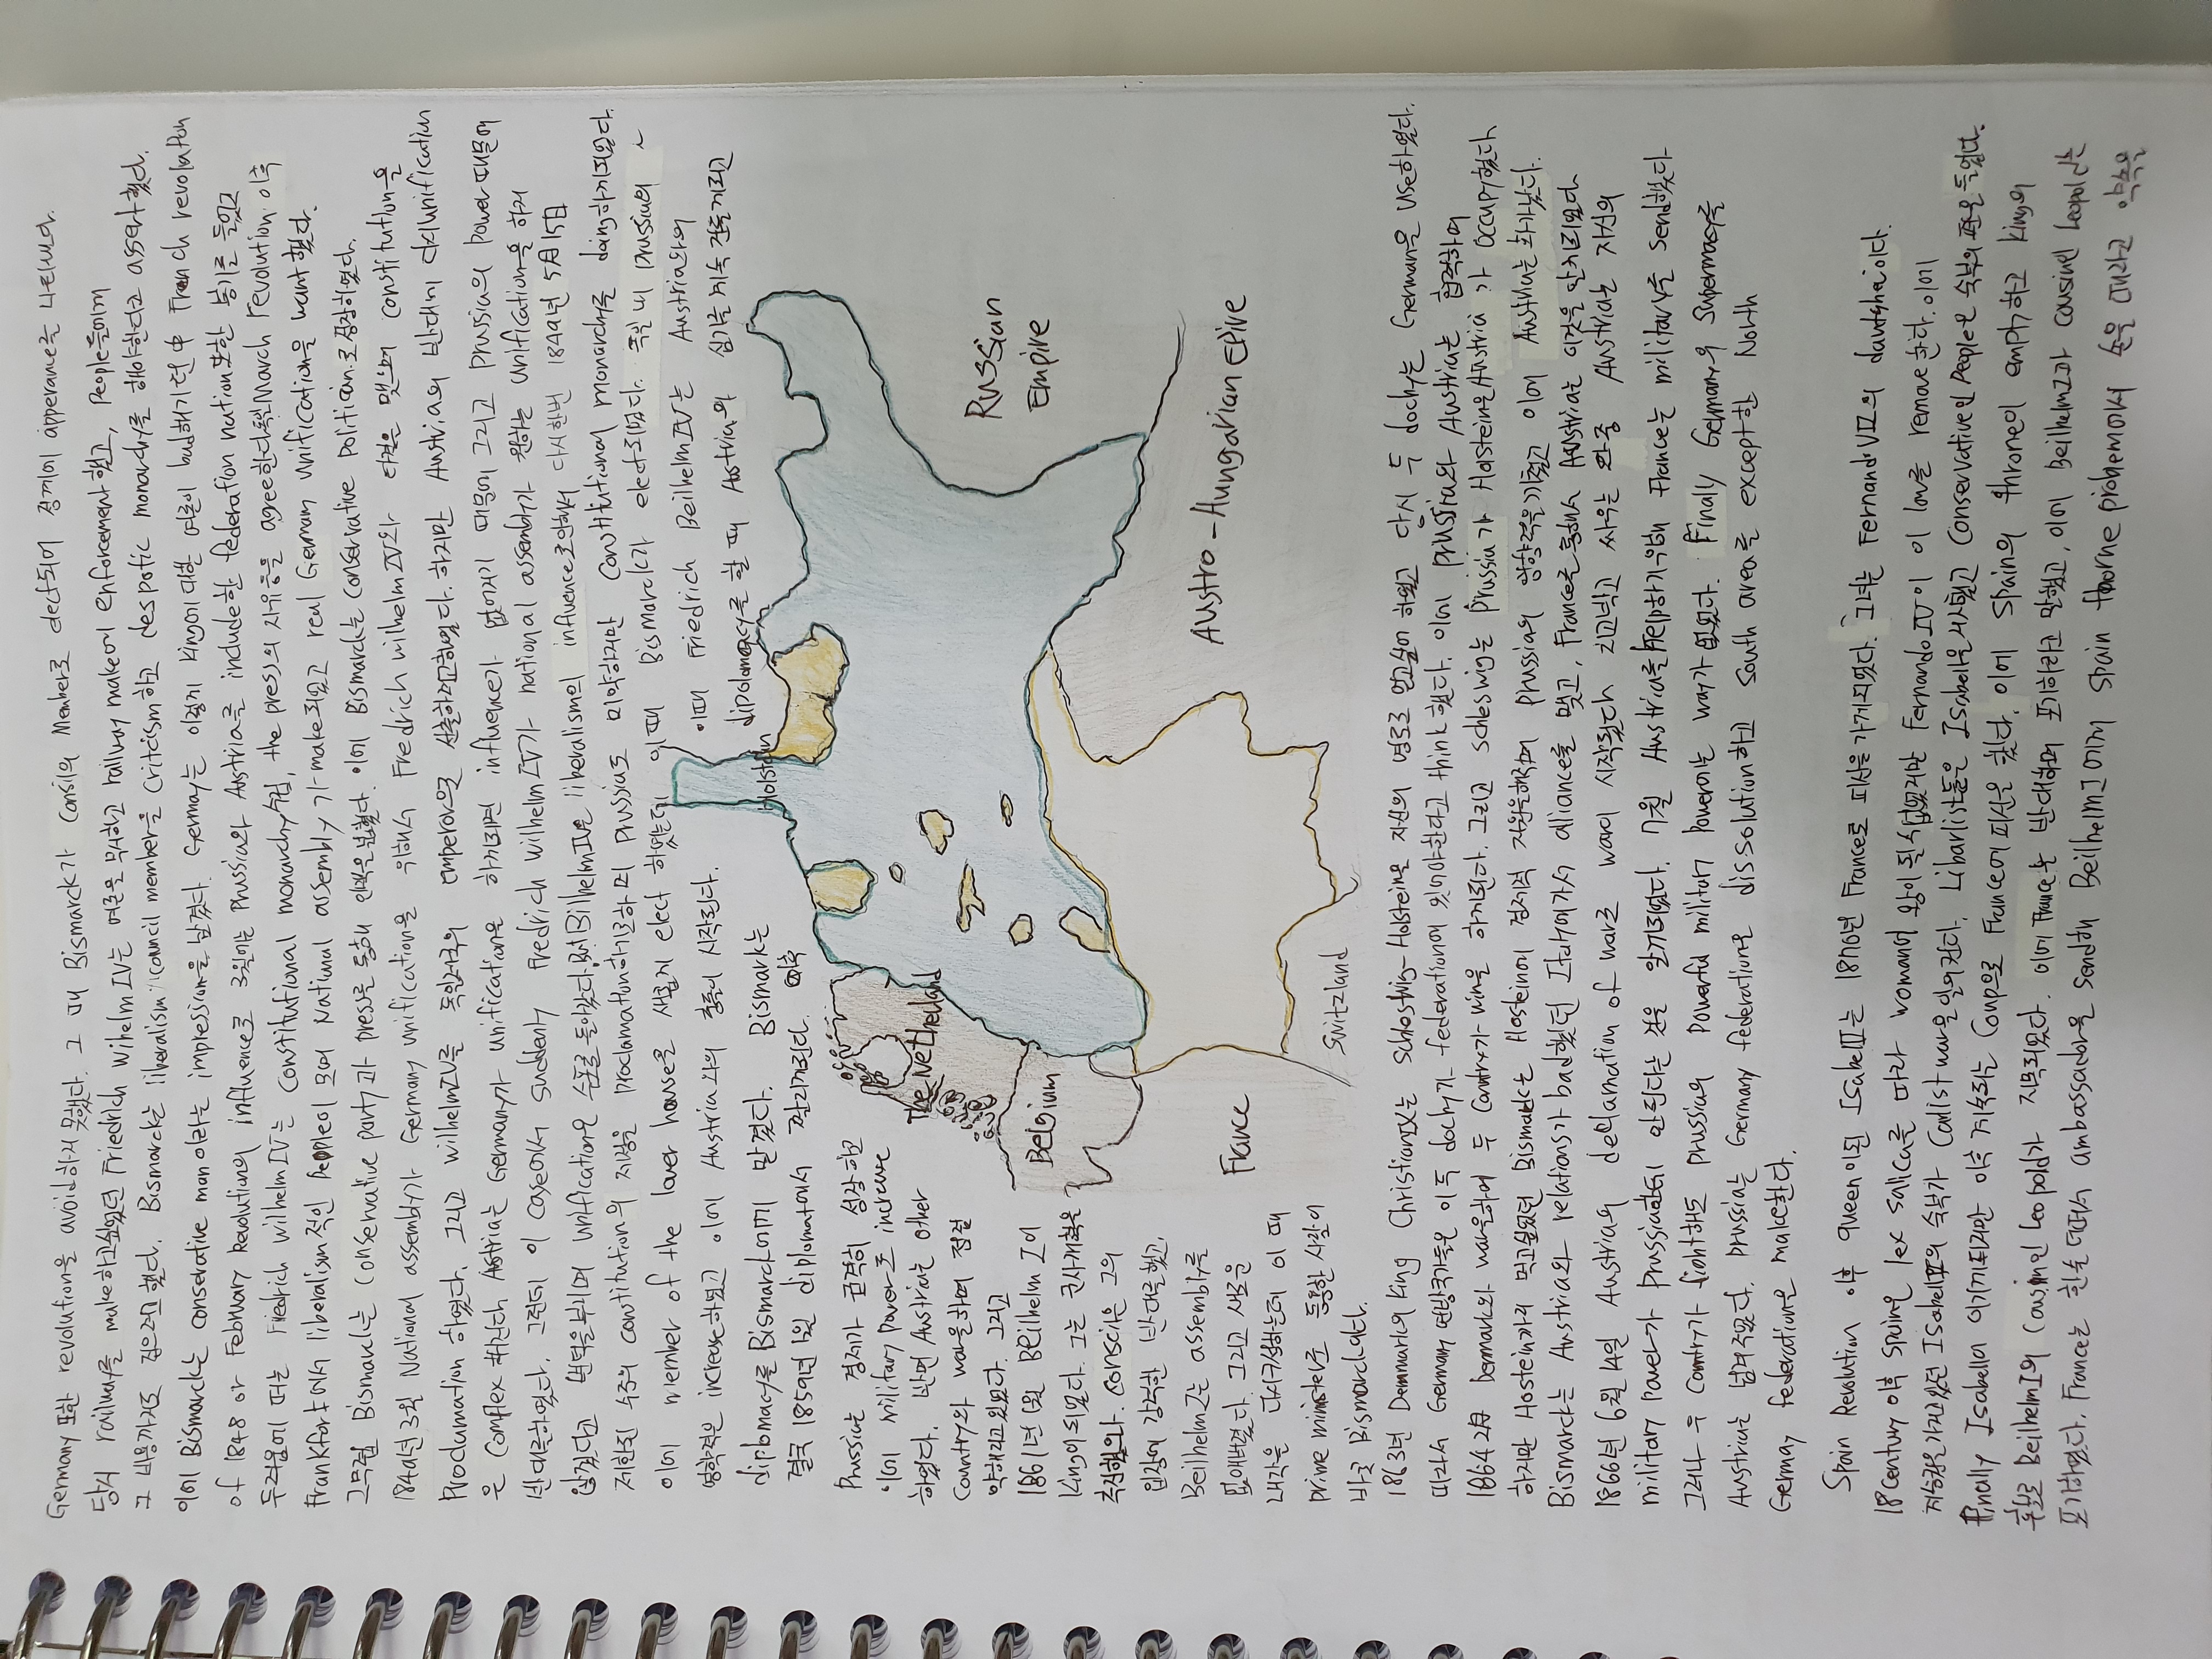 Germany 또한 revolution을 avoid하지 못했다. 그 때 Bismarck가 의 Member로 elect되어 정계에 apperance를 나타냈다.
당시 railway를 make하고싶었던 Friedrich Wilhelm IV는 여론을 무시하고 railway make에 enforcement했고, People들에게
그 비용까지도 했다. Bismarck는 liberalism council member을 criticism하고 despotic monarchy를 해야한다고 assert했다.
이에 Bismarck는 conservative man이라는 impression을 남겼다. Germany는 이렇게 king에 대한 여론이 bad해기던 中 French revolution
of 1848 or February Revolution의 influence로 3월에는 Prussia와 Austria를 include한 federation nation또한 봉기를 들었고
두려움에 떠는 Friedrich Wilhelm IV는 constitutional monarchy수립, the press의 자유등을 agree한다. March revolution 이후
Frankfort에서 liberalism적인 people이 모여 National assembly가 make되었고 real German unification을 want했다.
그무렵 Bismarck는 conservative party과 press를 통해 인맥을 넓혔다. 이에 Bismarck는 conservative politician로 성장하였다.
1849년 3월 National assembly가 Germany unification을 위해서 Fredrich Wilhelm IV와 타협을 맺으며 constitution을
Proclamation 하였다. 그리고 Wilhelm IV를 독일제국의 emperor으로 선출하려고하였다. 하지만 Austria의 반대에 unification
은 complex 해진다 Austria는 Germany가 unification을 하게되면 influence가 없어지기 때문이 그리고 Prussia의 power때문에
반대를하였다. 그런데 이 case에서 suddenly Fredrich Wilhelm IV가 national assembly가 원하는 unification을 하지
않겠다고 하며 unification은 수포로 돌아갔다. But Bilhelm IV는 liberalism의 influence로인해서 다시한번 1849년 5月 15日
제한된 수준의 constitution의 지정을 proclamation하기로하며 Prussia도 미약하지만 constitutional monarchy를 doing하게되었다.
이에 member of the lower house을 새롭게 elect 하였는데 이때 Bismarck가 elect되었다. 독일 내 Prussia의
영향력은 increase하였고 이에 Austria와의 충돌이 시작된다. 이때 Friedrich Beilhelm IV는 Austria와의
diplomacy를 Bismarck에게 맡겼다. Bismark는 dipolomacy를 할 때 Austria의 심기를 계속 건들게되고
결국 1859년 1월 diplomat에서 잘리게된다. 이후
Prussia는 경제가 급격히 성장하면
이에 military power도 increase
하였다. 반면 Austria는 other
country와 war을하며 점점
약해지고있었다. 그리고
1861년 1월 Beilhelm I이
king이 되었다. 그는 군사개혁을
추진했으나. conscil은 그의
입장에 강력한 반대를했고,
Beilhelm I는 assembly를
없애버렸다. 그리고 새로운
내각을 다시구성하는데 이 때
prime minister로 등장한 사람이
바로 Bismarck이다.
Holstein
The Netherland
Belgium
France
Switzland
Austro-Hungarian Epire
Russian
Empire
1863년 Denmark의 king Christian IX는 Schleswig-Holstein을 자신의 영토로 얻고싶어 하였고 당시 두 dochy는 German을 use하였다.
따라서 Germany 연방국가들은 이 두 dochy가 federation에 있어야한다고 think 했다. 이에 prussia와 Austria는 합작하여
1864 2月 Denmark와 war을하며 두 Contry가 win을 하게된다. 그리고 schleswing는 prussia가 Holstein은 Austria 가 occupy했다
하지만 Hostein까지 먹고싶었던 Bismarck는 Hostein에 경제적 지원을해주며 prussia의 영향력을키웠고 이에 Austria는 화가났다.
Bismarck는 Austria와 relations가 bad했던 Italy에가서 aliance를 맺고, France를 통해서 Austria는 이것을 알게되었다
1866년 6월 14일 Austria의 declarnation of war로 war이 시작된다 치고박고 싸우는 와중 Austria는 자신의
military power가 prussia한테 안된다는 것을 알게되었다. 7월 Austria를 help하기위해 France는 military을 send했다
그러나 두 country가 fight해도 prussia의 powerful military power에는 way가 없었다. Finally Germany의 supermacy를
Austria는 넘겨주었다. prussia는 Germany federation을 dissolution하고 South area를 except한 North
Germay federation을 make한다.
Spain Revolution 이후 queen이된 Isabel II는 1870년 France로 피신을 가게되었다. 그녀는 Fernand VII의 daugther이다.
18century 이후 Spain은 lex salica를 따라 woman이 왕이 될 수 없었지만 Fernando IV이 이 law를 remove 한다. 이에
지하권을 가지고있던 Isabel II의 숙부가 Carlist war을 일으킨다. Libarlist들은 Isabel을 지지했고 Conservative인 people은 숙부의 편을 들었다.
Finally Isabel이 이기게되지만 이후 지속되는 coup으로 France에 피신을 갔다. 이에 Spain의 throne이 empty하고 king의
후보로 Beilhelm I의 Cousin인 leopold가 지목되었다. 이에 France는 반대하며 포기하라고 말했고, 이에 Beilhelm I과 cousin인 leopold는
포기하였다. France는 한술 더떠서 ambassador을 send해 Beilhelm I에게 spain thorne problem에서 손을 떼라고 약속을